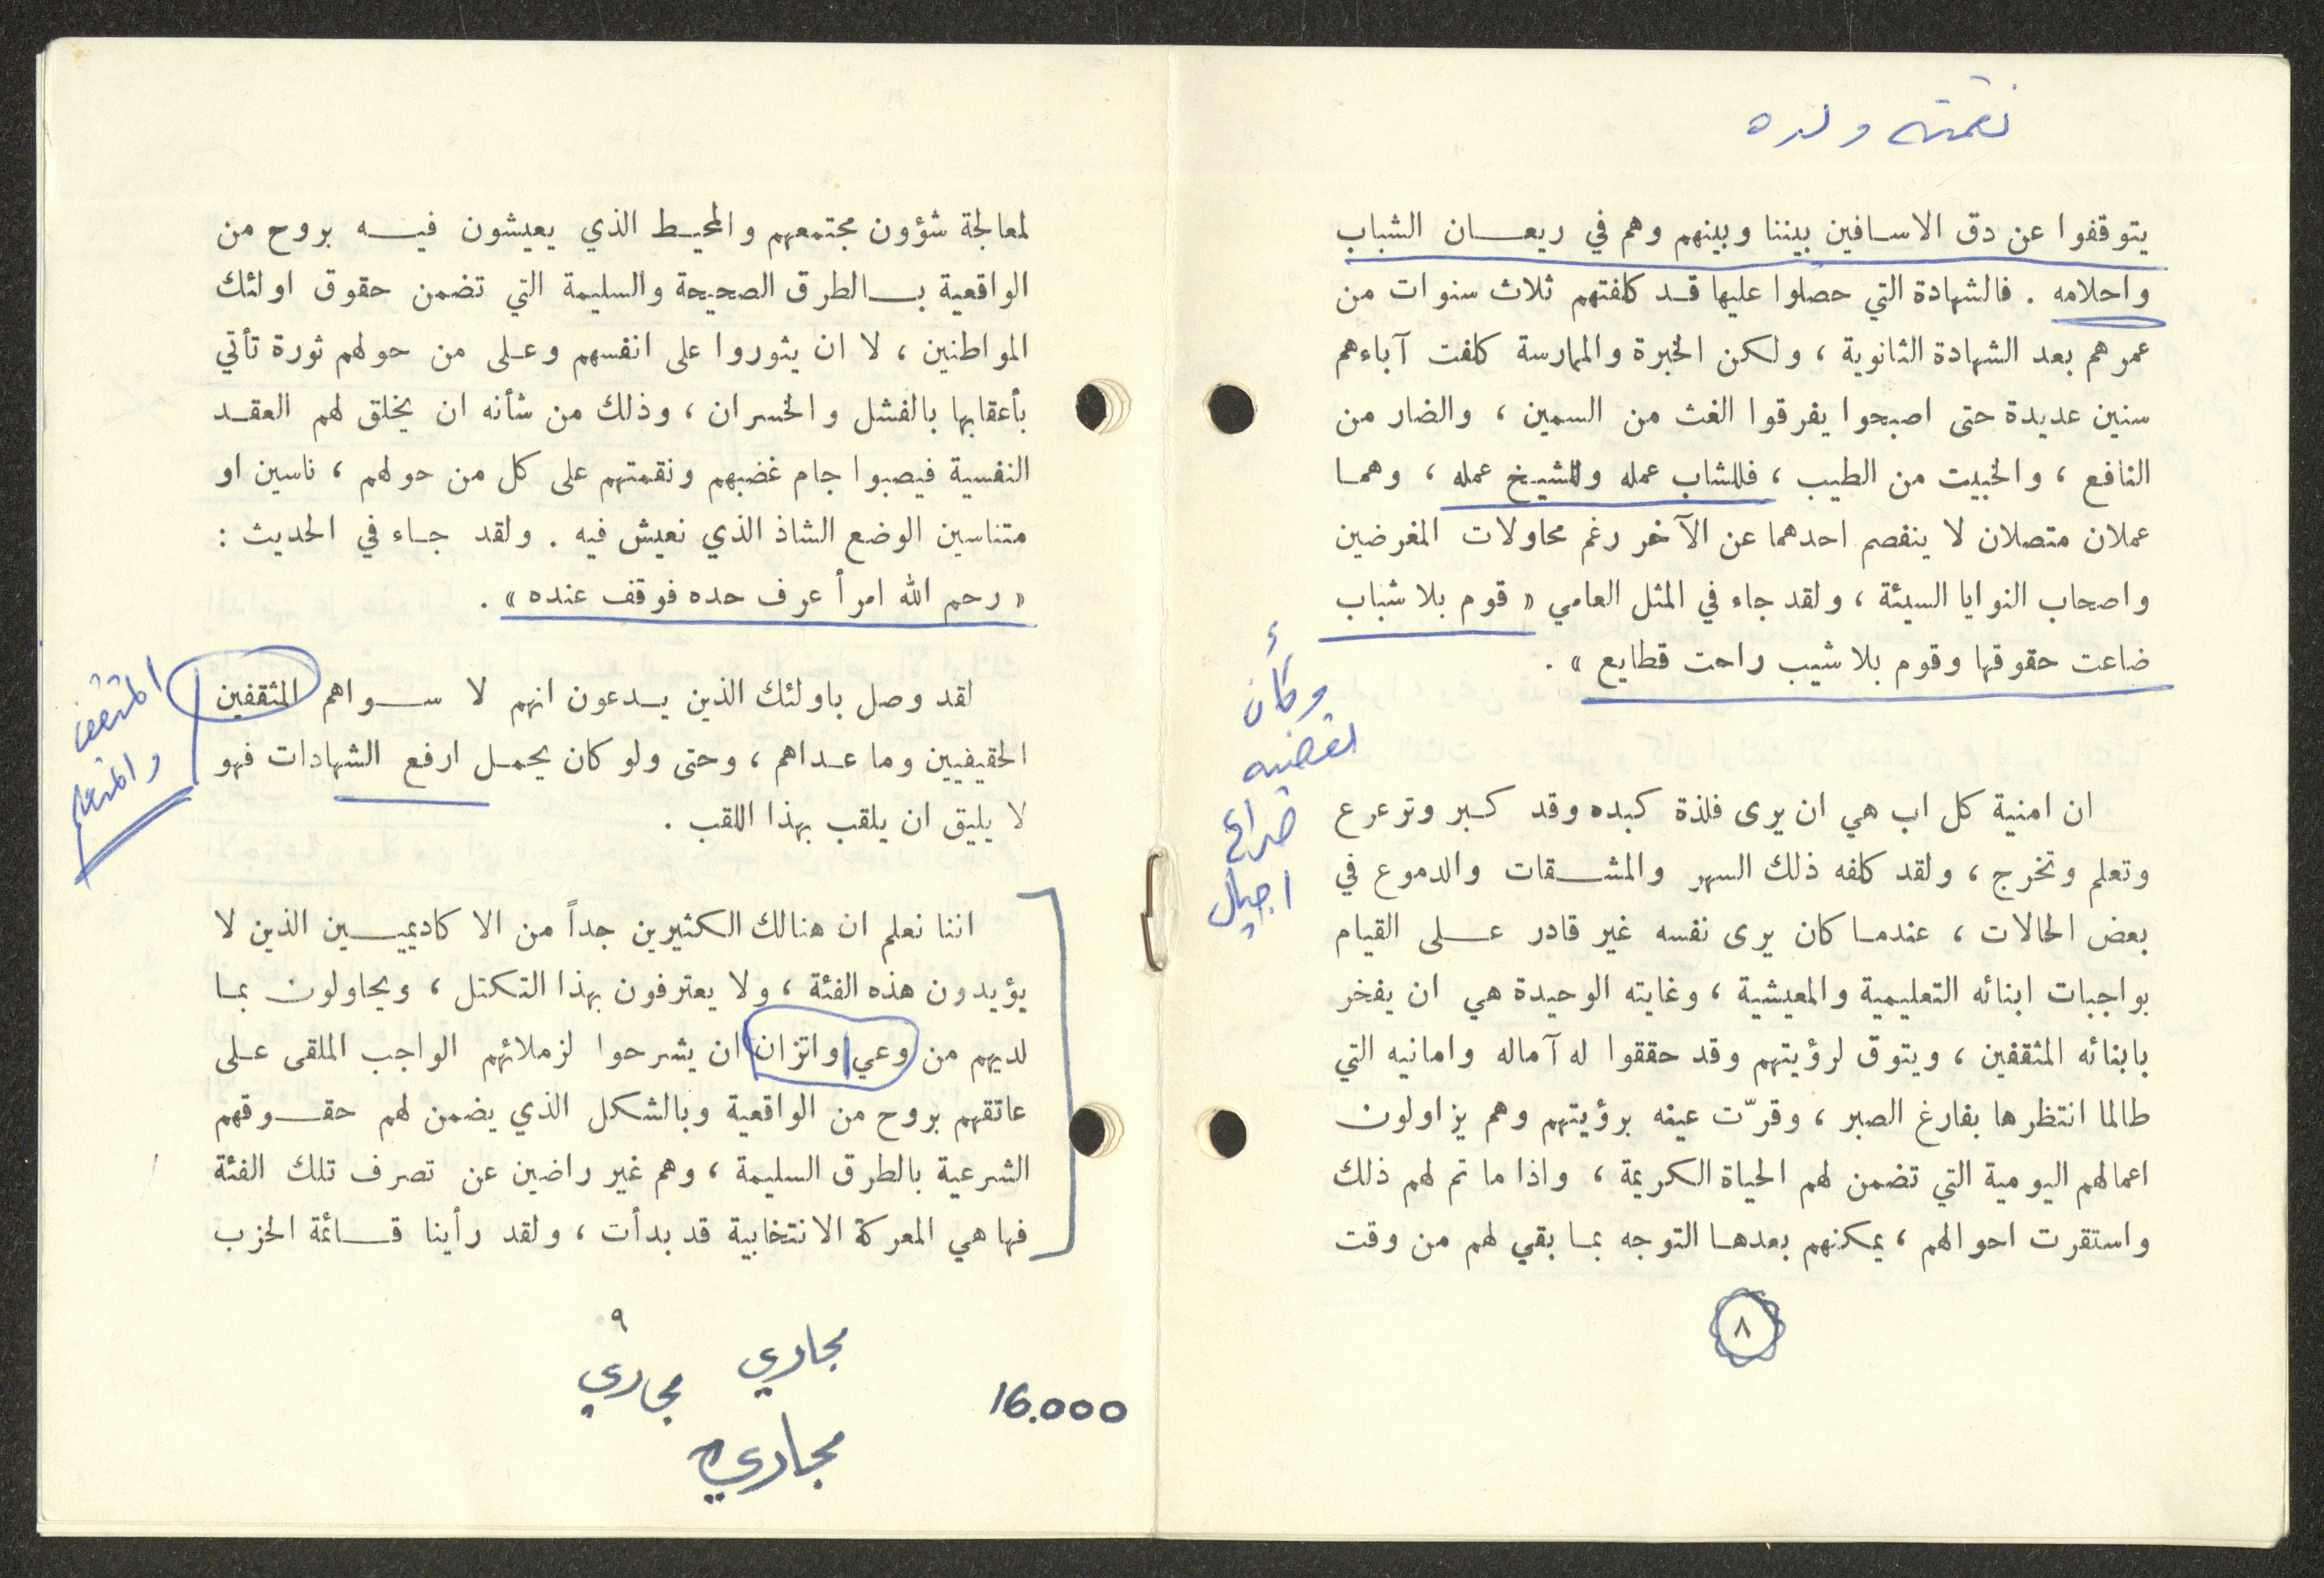 يتوقفوا عن دق الاسافين بيننا وبينهم وهم في ريعان الشباب
واحلامه . فالشهادة التي حصلوا عليها قد كلفتهم ثلاث سنوات من
عمرهم بعد الشهادة الثانوية ، ولكن الخبرة والممارسة كلفت آباءهم
سنين عديدة حتى اصبحوا يفرقوا الغث من السمين ، والضار من
النافع ، والخبيث من الطيب ، فللشاب عمله وللشيخ عمله ، وهما
عملان متصلان لا ينفصم احدهما عن الآخر رغم محاولات المغرضين
واصحاب النوايا السيئة ، ولقد جاء في المثل العامي « قوم بلا شباب
ضاعت حقوقها وقوم بلا شيب راحت قطايع » .
وكأن
القضية
صراع
اجيال
ان امنية كل اب هي ان يرى فلذة كبده وقد كبر وترعرع
وتعلم وتخرج ، ولقد كلفه ذلك السهر والمشقات والدموع في
بعض الحالات ، عندما كان يرى نفسه غير قادر على القيام
بواجبات ابنائه التعليمية والمعيشية ، وغايته الوحيدة هي ان يفخر
بابنائه المثقفين ، ويتوق لرؤيتهم وقد حققوا له آماله وامانيه التي
طالما انتظرها بفارغ الصبر ، وقرّت عينه برؤيتهم وهم يزاولون
اعمالهم اليومية التي تضمن لهم الحياة الكريمة ، واذا ما تم لهم ذلك
واستقرت احوالهم ، يمكنهم بعدها التوجه بما بقي لهم من وقت
٨
لمعالجة شؤون مجتمعهم والمحيط الذي يعيشون فيه بروح من
الواقعية بالطرق الصحيحة والسليمة التي تضمن حقوق اولئك
المواطنين ، لا ان يثوروا على انفسهم وعلى من حولهم ثورة تأتي
بأعقابها بالفشل والخسران ، وذلك من شأنه ان يخلق لهم العقد
النفسية فيصبوا جام غضبهم ونقمتهم على كل من حولهم ، ناسين او
متناسين الوضع الشاذ الذي نعيش فيه . ولقد جاء في الحديث :
« رحم الله امرأ عرف حده فوقف عنده » .
لقد وصل باولئك الذين يدعون انهم لا سواهم المثقفين
الحقيفيين وما عداهم ، وحتى ولو كان يحمل ارفع الشهادات فهو
لا يليق ان يلقب بهذا اللقب .
المثقف
والمتعلم
اننا نعلم ان هنالك الكثيرين جداً من الاكاديميين الذين لا
يؤيدون هذه الفئة ، ولا يعترفون بهذا التكتل ، ويحاولون بما
لديهم من وعي واتزان ان يشرحوا لزملائهم الواجب الملقى على
عاتقهم بروح من الواقعية وبالشكل الذي يضمن لهم حقوقهم
الشرعية بالطرق السليمة ، وهم غير راضين عن تصرف تلك الفئة
فها هي المعركة الانتخابية قد بدأت ، ولقد رأينا قائمة الحزب
٩
مجاري
مجاري
مجاري
16.000